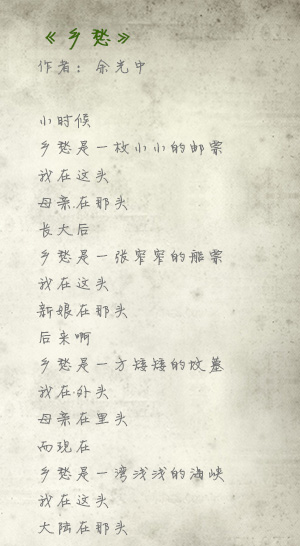 《乡愁》
作者：余光中
小时候
乡愁是一枚小小的邮票
我在这头
母亲在那头
长大后
乡愁是一张窄窄的船票
我在这头
新娘在那头
后来啊
乡愁是一方矮矮的坟墓
我在外头
母亲在里头
而现在
乡愁是一湾浅浅的海峡
我在这头
大陆在那头